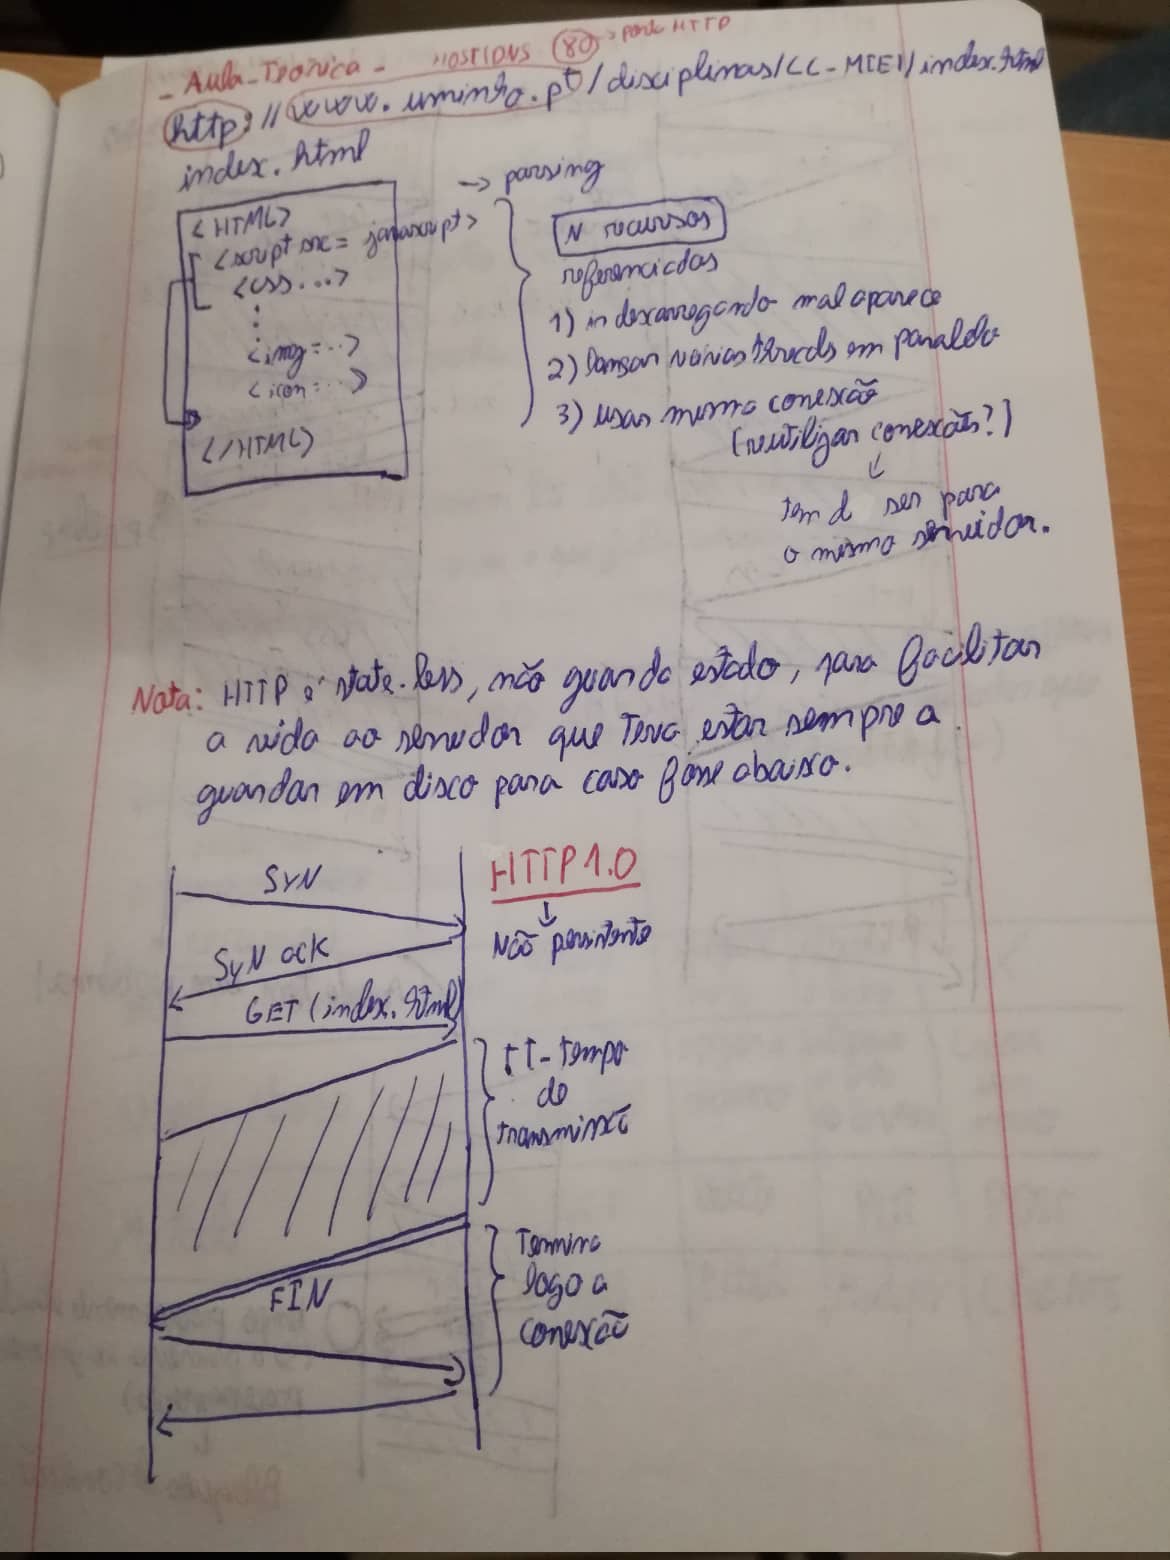 - Aula-Teórica - HOST/DNS 80 -> porta HTTP
http://www.uminho.pt/disciplinas/CC-MIEI/index.html
index.html
-> parsing
<HTML>
<script src= javascript>
<css...>
<img=..>
<icon=..>
</HTML>
N recursos
referenciados
1) ir descarregando mal aparece
2) Lançar várias threads em paralelo
3) usar mesma conexão
(reutilizar conexão?)
tem d ser para
o mesmo servidor.
Nota: HTTP é state-less, não guarda estado, para facilitar
a vida ao servidor que teria estar sempre a
guardar em disco para caso fosse abaixo.
SYN
SYN ack
GET (index.html)
FIN
HTTP1.0
Não persistente
TT-tempo
de
transmissão
Termina
logo a
conexão